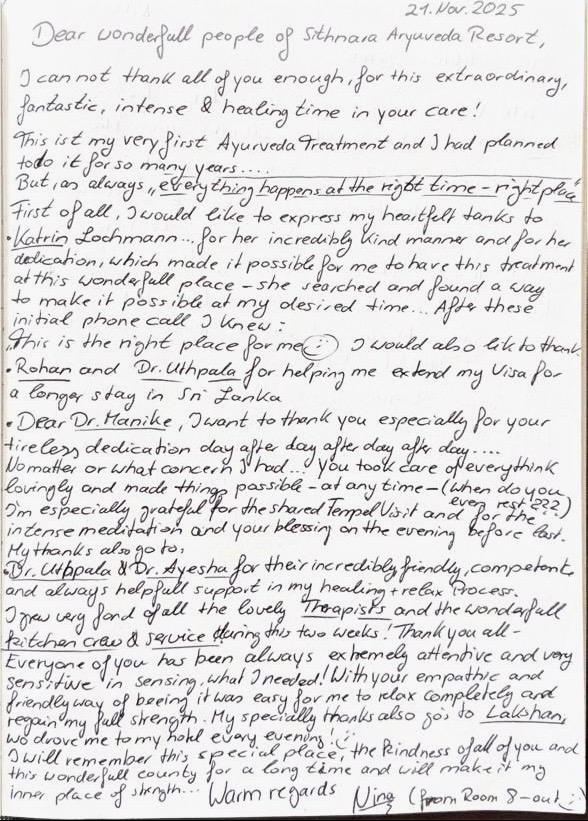 21. Nov. 2025
Dear wonderfull people of Sithnara Aryuveda Resort,
I can not thank all of you enough, for this extraordinary,
fantastic, intense & healing time in your care!
This ist my very first Ayurveda Treatment and I had planned
todo it for so many years....
But, as always „everything happens at the right time - right place"
First of all, I would like to express my heartfelt tanks to
• Katrin Lochmann... for her incredibly kind manner and for her
dedication, which made it possible for me to have this treatment
at this wonderfull place - she searched and found a way
to make it possible at my desired time... After these
initial phone call I knew:
„This is the right place for me" :) I would also lik to thank
• Rohan and Dr. Uthpala for helping me extend my Visa for
a longer stay in Sri Lanka
• Dear Dr. Manike, I want to thank you especially for your
tireless dedication day after day after day after day....
No matter or what concern I had... you took care of everythink
lovingly and made things possible - at any time - (when do you
ever rest ???)
I'm especially grateful for the shared Tempel Visit and for the
intense meditation and your blessing on the evening before last.
My thanks also go to:
• Dr. Uthpala & Dr. Ayesha for their incredibly friendly, competent
and always helpfull support in my healing + relax Process.
I grew very fond of all the lovely Therapists and the wonderfull
kitchen crew & service during this two weeks! Thank you all -
Everyone of you has been always extremely attentive and very
sensitive in sensing, what I needed! With your empathic and
friendly way of beeing it was easy for me to relax completely and
regain my full strength. My specially thanks also go's to Lakshan,
wo drove me to my hotel every evening! :)
I will remember this special place, the kindness of all of you and
this wonderfull county for a long time and will make it my
inner place of strength... Warm regards Nina (from Room 8-out :)